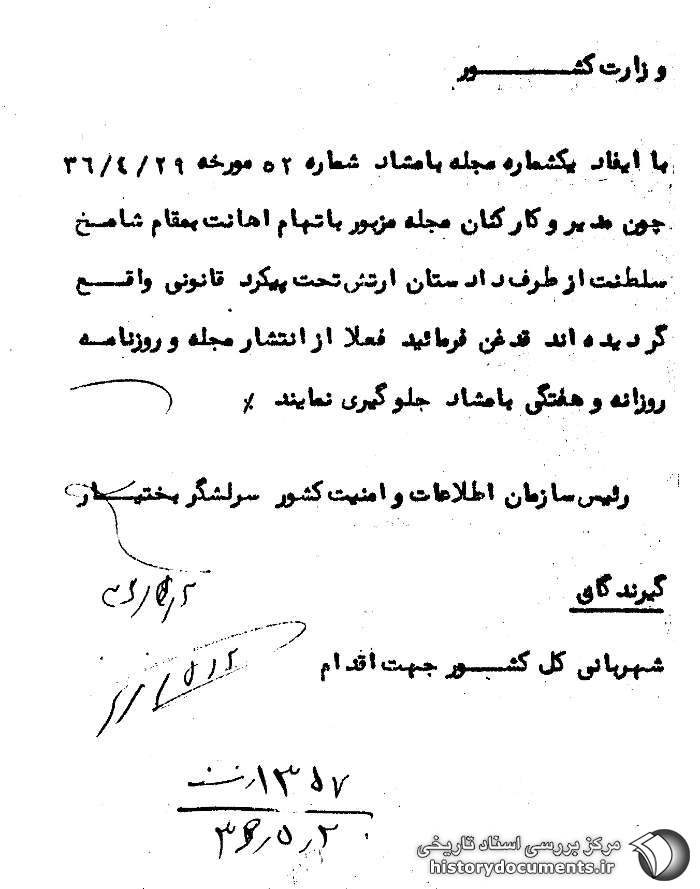 وزارت کشـــــــور
با ایفاد یکشماره مجله بامشاد شماره ۵۲ مورخه ۳۶/٤/۲۹
چون مدیر و کارکنان مجله مزبور باتهام اهانت بمقام شامـخ
سلطنت از طرف دادستان ارتش تحت پیکرد قانونی واقـــع
گردیده اند قدغن فرمائید فعلا از انتشار مجله و روزنامـه
روزانه و هفتگی بامشاد جلوگیری نمایند ٪
رئیس سازمان اطلاعات و امنیت کشور سرلشگر بختیـــار
گیرندگان
شهربانی کل کشـــور جهت اقدام
۱۳۵۷
مرکز بررسی اسناد تاریخی
historydocuments.ir